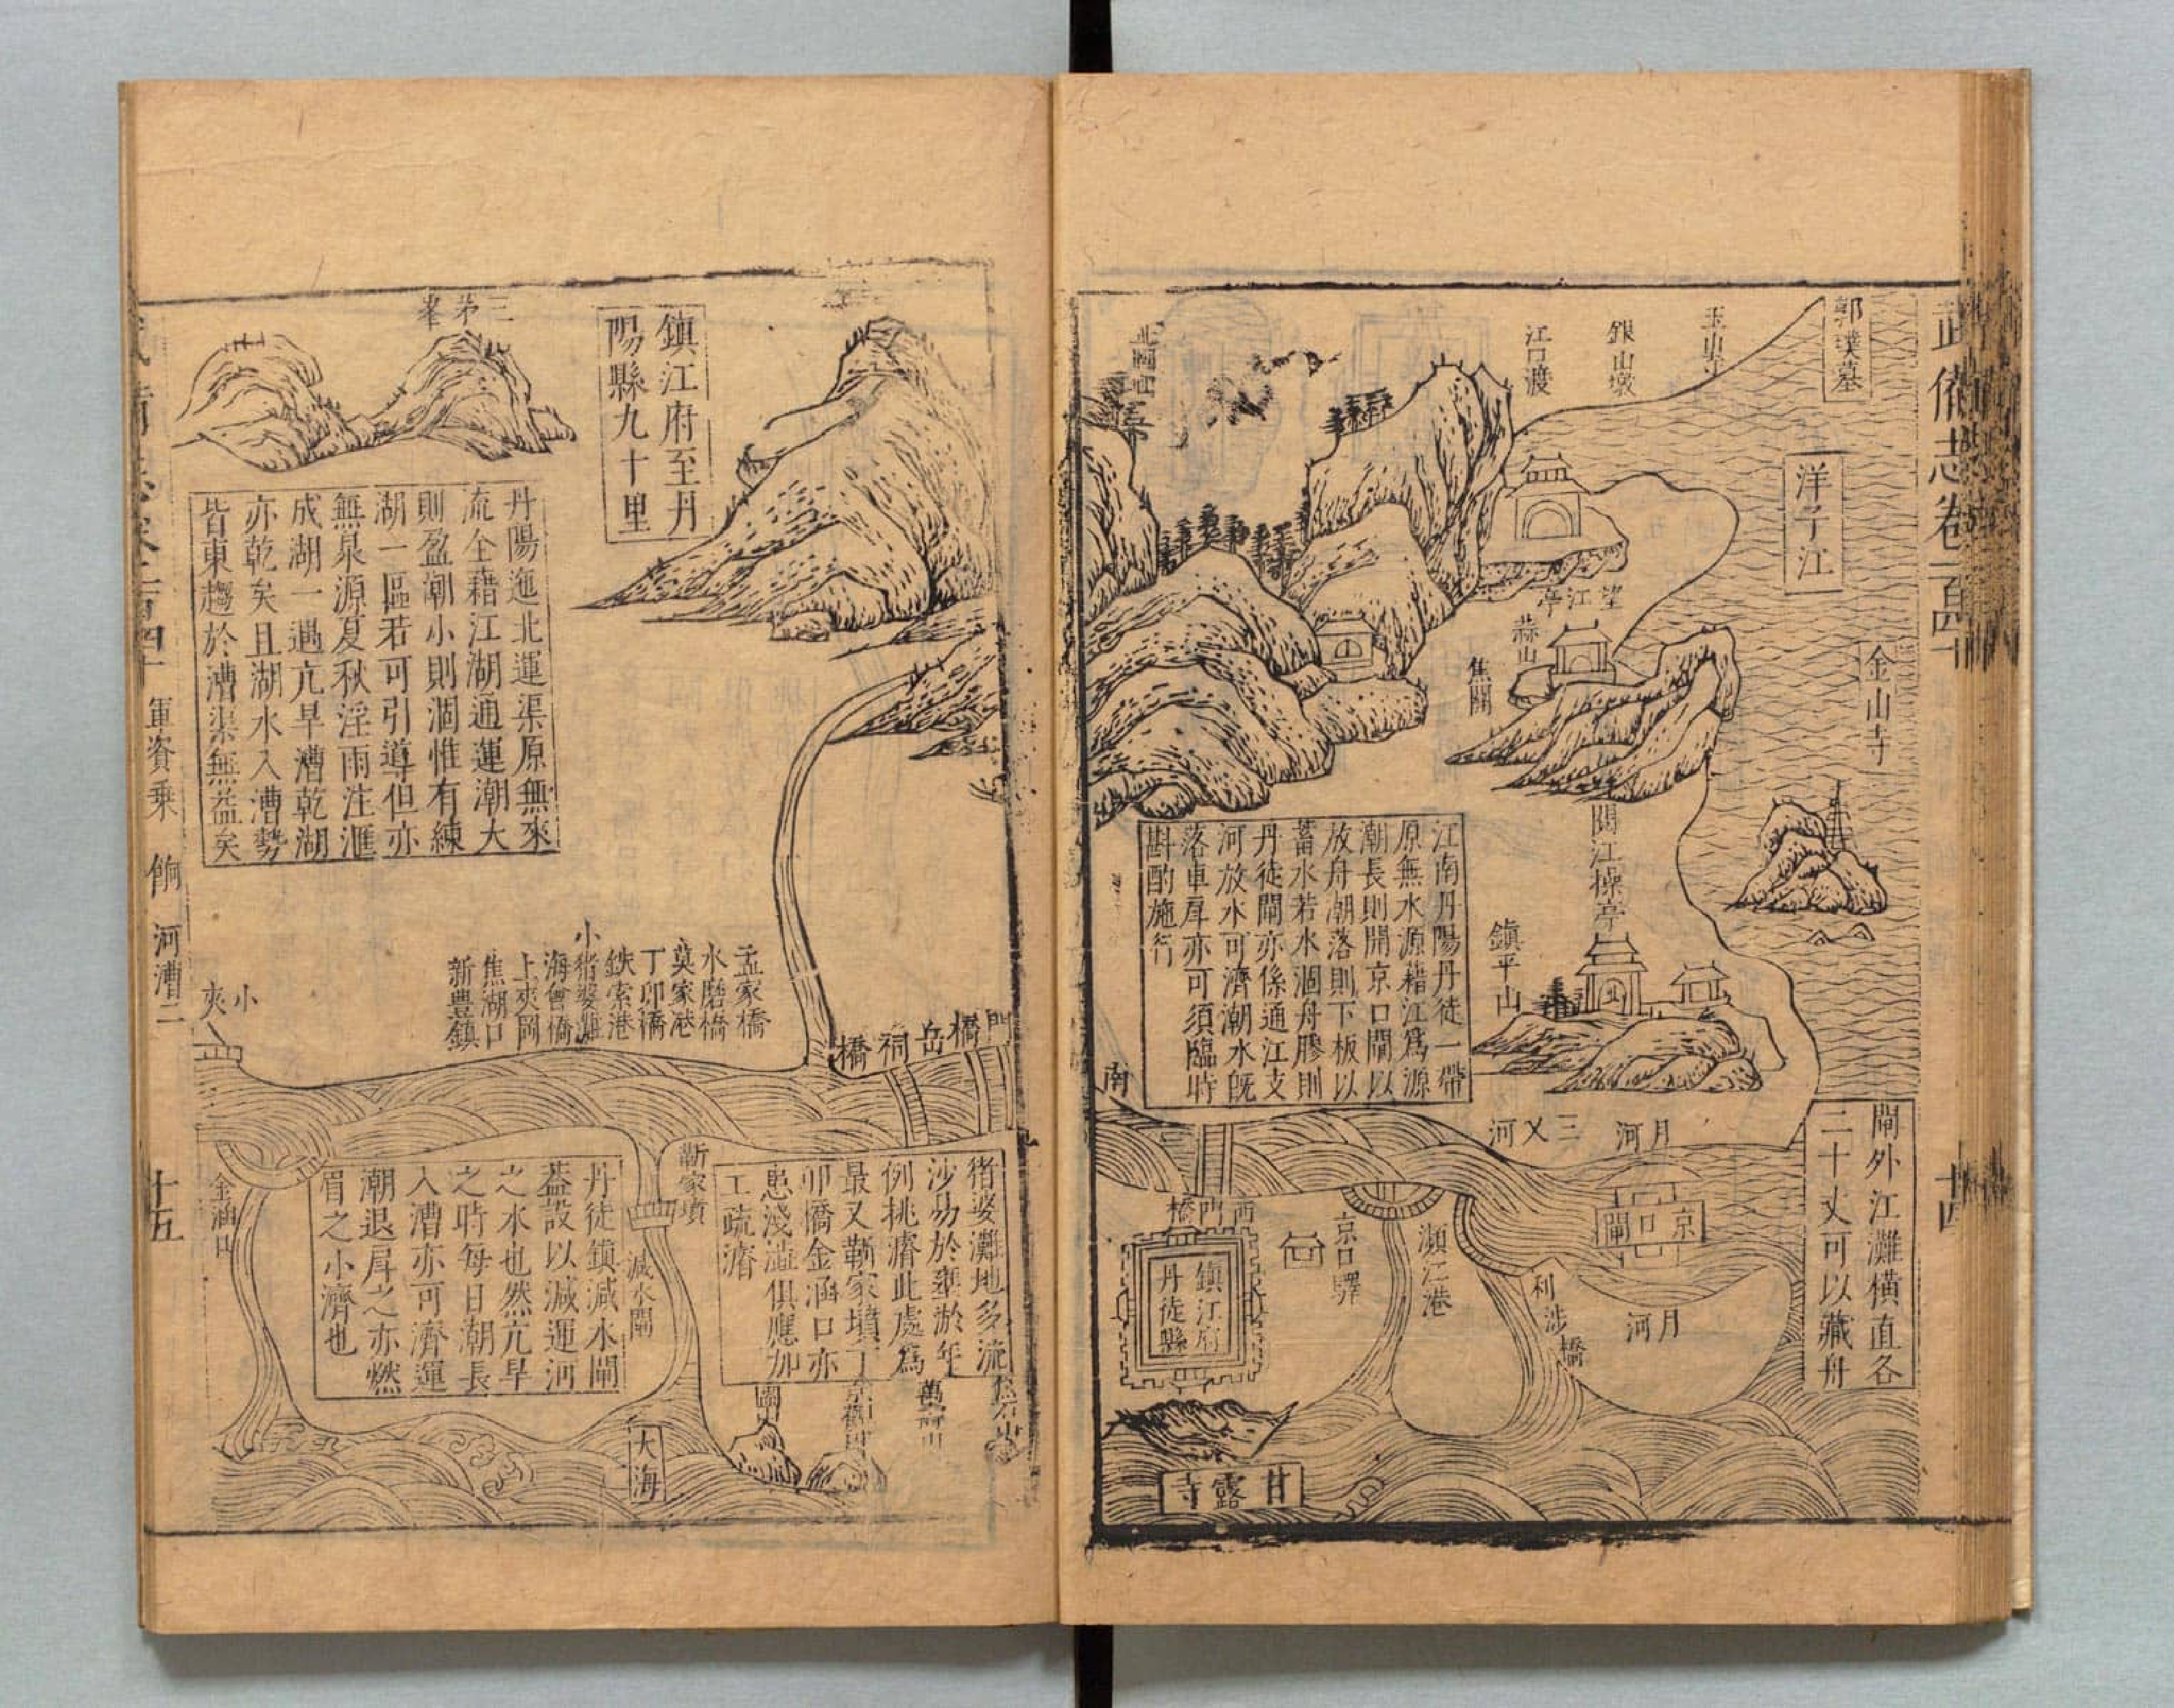 武備志卷一百四十
十四
郭璞墓
洋子江
金山寺
玉山寺
銀山墩
江口渡
北固山
望江亭
蒜山
焦關
閱江操亭
鎮平山
江南丹陽丹徒一帶
原無水源藉江爲源
潮長則開京口閘以
放舟潮落則下板以
蓄水若水涸舟膠則
丹徒閘亦係通江支
河放水可濟潮水既
落車戽亦可須臨時
斟酌施行
閘外江灘橫直各
二十丈可以藏舟
月河
三乂河
京口閘
月河
利涉橋
瀕江港
京口驛
西門橋
鎮江府
丹徒縣
甘露寺
南
門橋
岳祠橋
鎮江府至丹
陽縣九十里
三茅峯
丹陽迤北運渠原無來
流全藉江湖通運潮大
則盈潮小則涸惟有練
湖一區若可引導但亦
無泉源夏秋淫雨注滙
成湖一遇亢旱漕乾湖
亦乾矣且湖水入漕勢
皆東趨於漕渠無益矣
孟家橋
水磨橋
莫家港
丁卯橋
鉄索港
小猪婆灘
海會橋
上夾岡
焦湖口
新豊鎮
小夾
猪婆灘地多流
沙易於壅淤年
例挑濬此處爲
最又靳家墳丁
卯橋金涵口亦
患淺澁俱應加
工疏濬
靳家墳
減水閘
丹徒鎮減水閘
葢設以減運河
之水也然亢旱
之時每日潮長
入漕亦可濟運
潮退戽之亦燃
眉之小濟也
金涵口
圌山
大海
軍資乗
餉
河漕二
十五